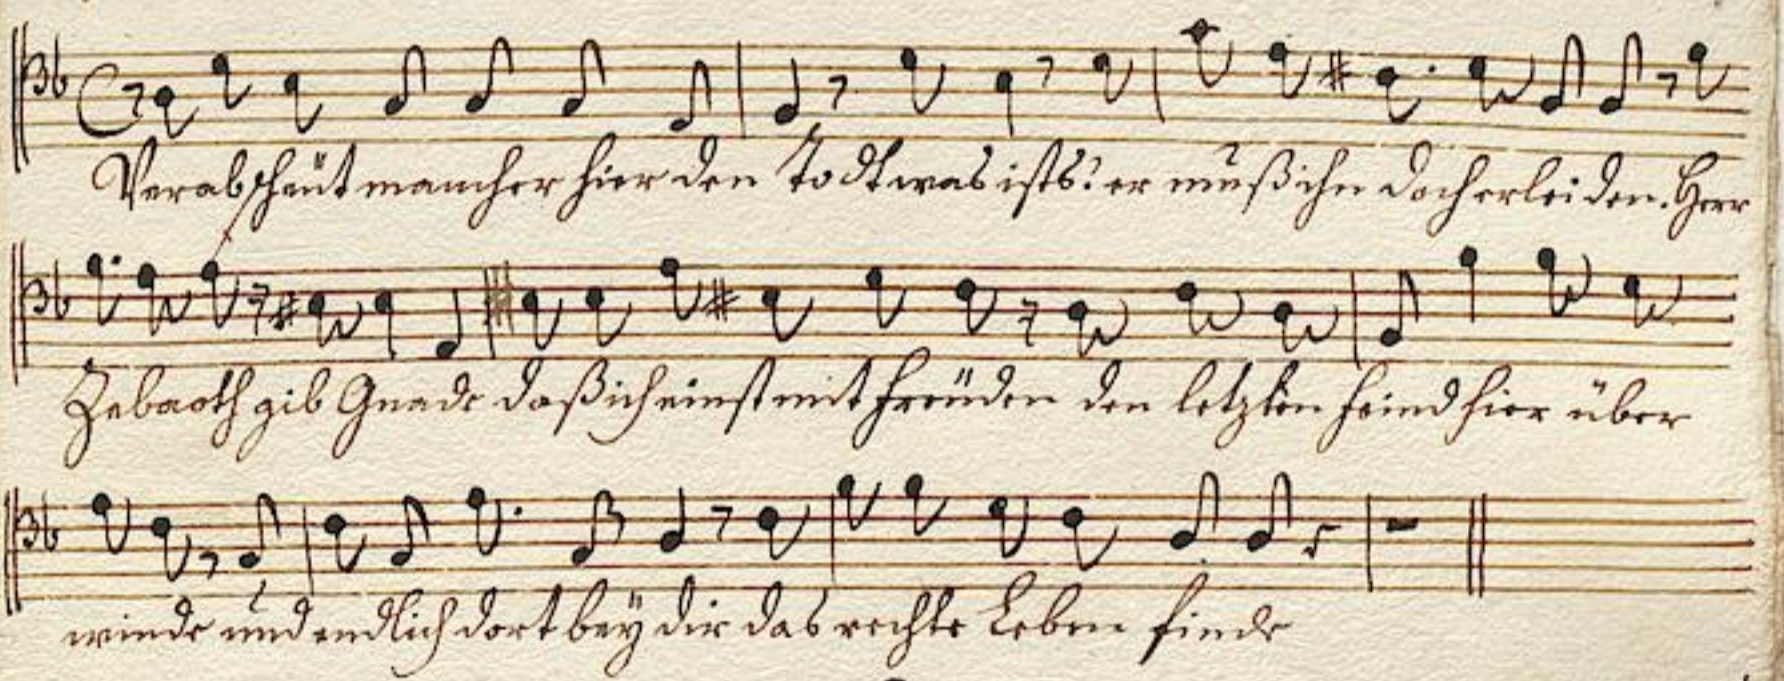 Verabscheüt mancher hier den Todt was ists? er muß ihn doch erleiden. Herr
Zebaoth gib Gnade daß ich einst mit freüden den letzten feind hier über
winde und endlich dort bey dir das rechte Leben finde